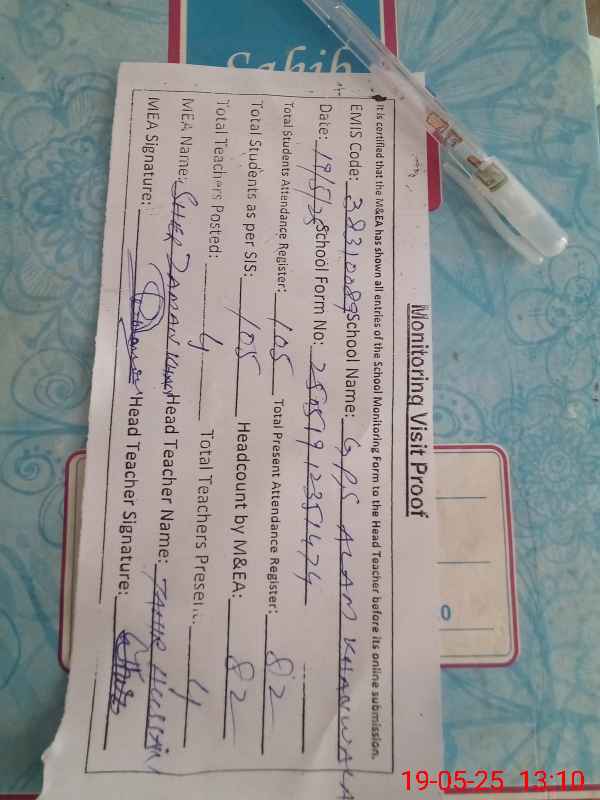 Sahib
Monitoring Visit Proof
It is certified that the M&EA has shown all entries of the School Monitoring Form to the Head Teacher before its online submission.
EMIS Code: 38310089 School Name: GPS ALAM KHANWALA
Date: 19/5/25 School Form No: 25051912351474
Total Students Attendance Register: 105 Total Present Attendance Register: 82
Total Students as per SIS: 105 Headcount by M&EA: 82
Total Teachers Posted: 4 Total Teachers Present: 4
MEA Name: SHER ZAMAN KHAN Head Teacher Name: TAHIR
MEA Signature: Head Teacher Signature:
19-05-25 13:10